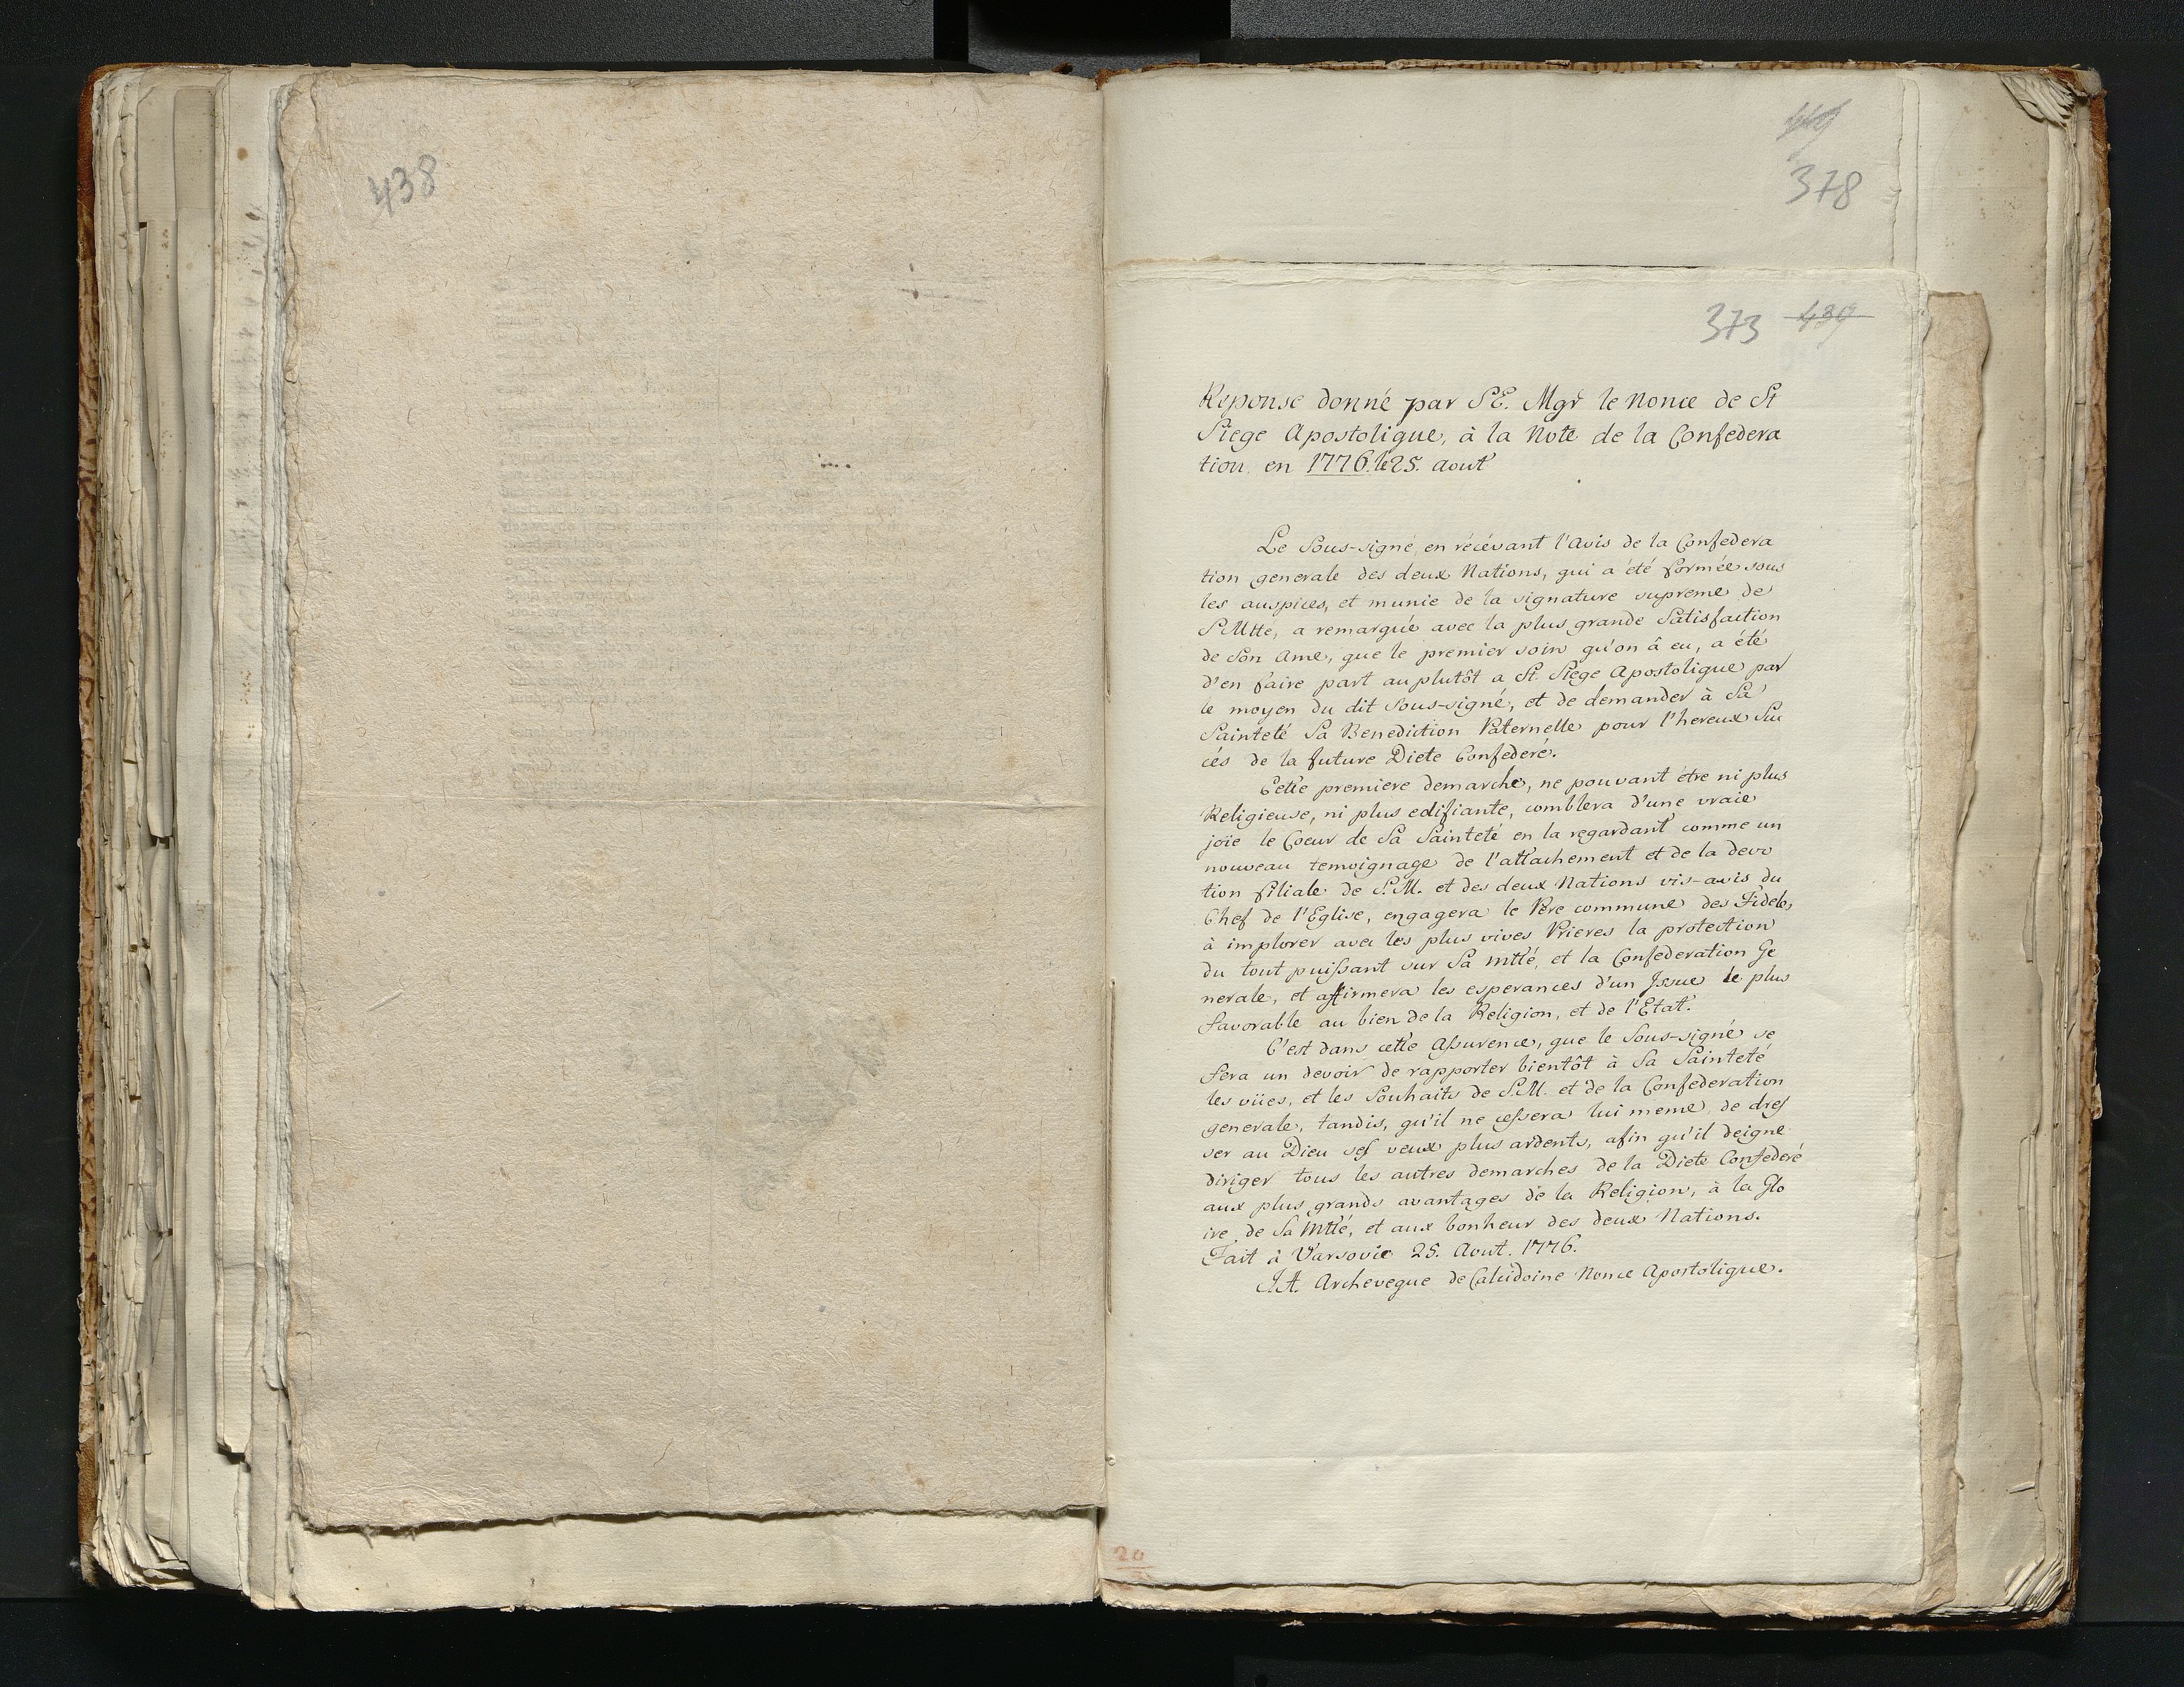 438
378
373 439
Reponse donné par S.E. Mgr le Nonce de St
Siege Apostolique, à la Note de la Confedera
tion en 1776. le 25. aout
Le Sous-signé, en récévant l'Avis de la Confedera
tion generale des deux Nations, qui a été formée sous
les auspices, et munie de la signature supreme de
S. Mtte, a remarqué avec la plus grande Satisfaction
de Son Ame, que le premier soin qu'on â eu, a été
d'en faire part au plutôt a St. Siege Apostolique par
le moyen du dit Sous-signé, et de demander à Sa
Sainteté Sa Benediction Paternelle pour l'hereux Suc
cés de la future Diete Confederé.
Cette premiere demarche, ne pouvant étre ni plus
Religieuse, ni plus edifiante, comblera d'une vraie
joïe le Coeur de Sa Sainteté en la regardant comme un
nouveau temoignage de l'attachement et de la devo
tion filiale de S.M. et des deux Nations vis-avis du
Chef de l'Eglise, engagera le Pére commune des Fideles
à implorer avec les plus vives Prieres la protection
du tout puissant sur Sa Mtté, et la Confederation Ge
nerale, et affirmera les esperances d'un Issue le plus
favorable au bien de la Religion, et de l'Etat.
C'est dans cette Assurence, que le Sous-signé se
fera un devoir de rapporter bientôt à Sa Sainteté
les vües, et les Souhaits de S.M. et de la Confederation
generale, tandis, qu'il ne cessera lui meme, de dres
ser au Dieu ses veux plus ardents, afin qu'il deigne
diriger tous les autres demarches de la Diete Confederé
aux plus grands avantages de la Religion, à la Glo
ire de Sa Mtté, et aux bonheur des deux Nations.
Fait à Varsovie 25. Aout. 1776.
J.A. Archeveque de Calcidoine Nonce Apostolique.
20